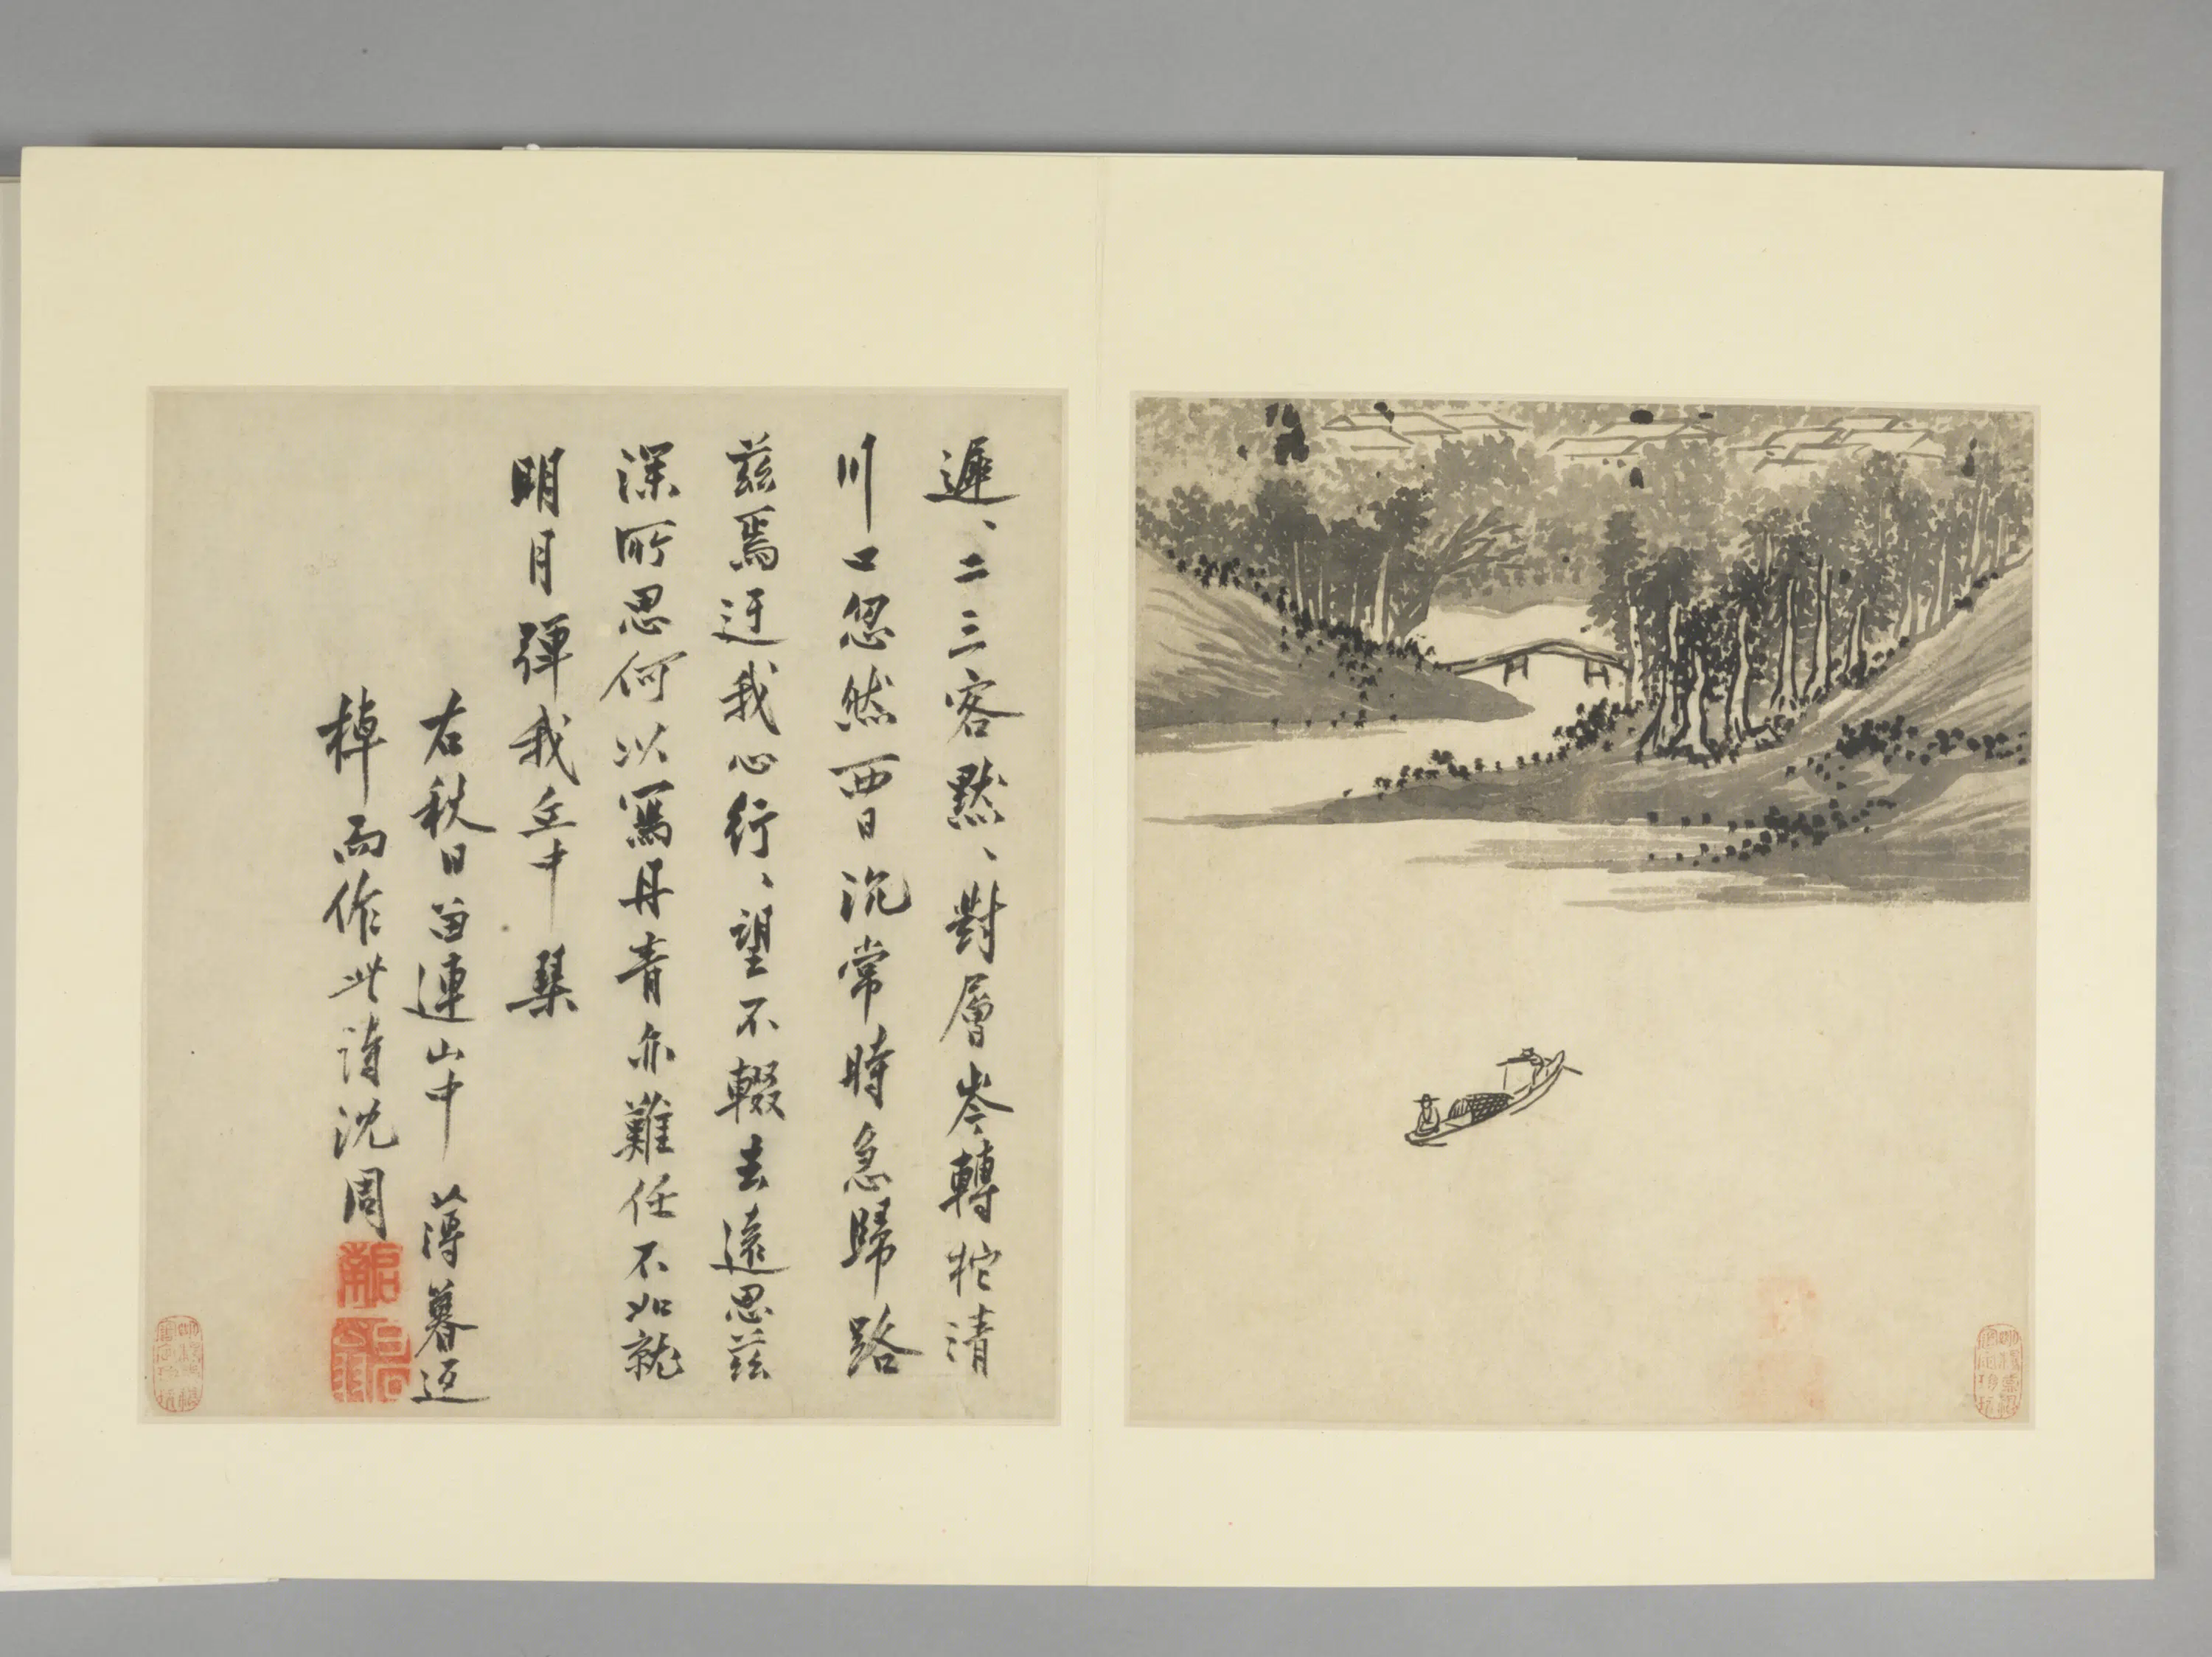 遲、二三客默、對層岑轉柁清
川口忽然西日沉常時急歸路
茲焉迂我心行、望不輟去遠思茲
深所思何以寫丹青亦難任不如就
明月彈我丘中琴
右秋日留連山中薄暮返
棹而作此詩沈周